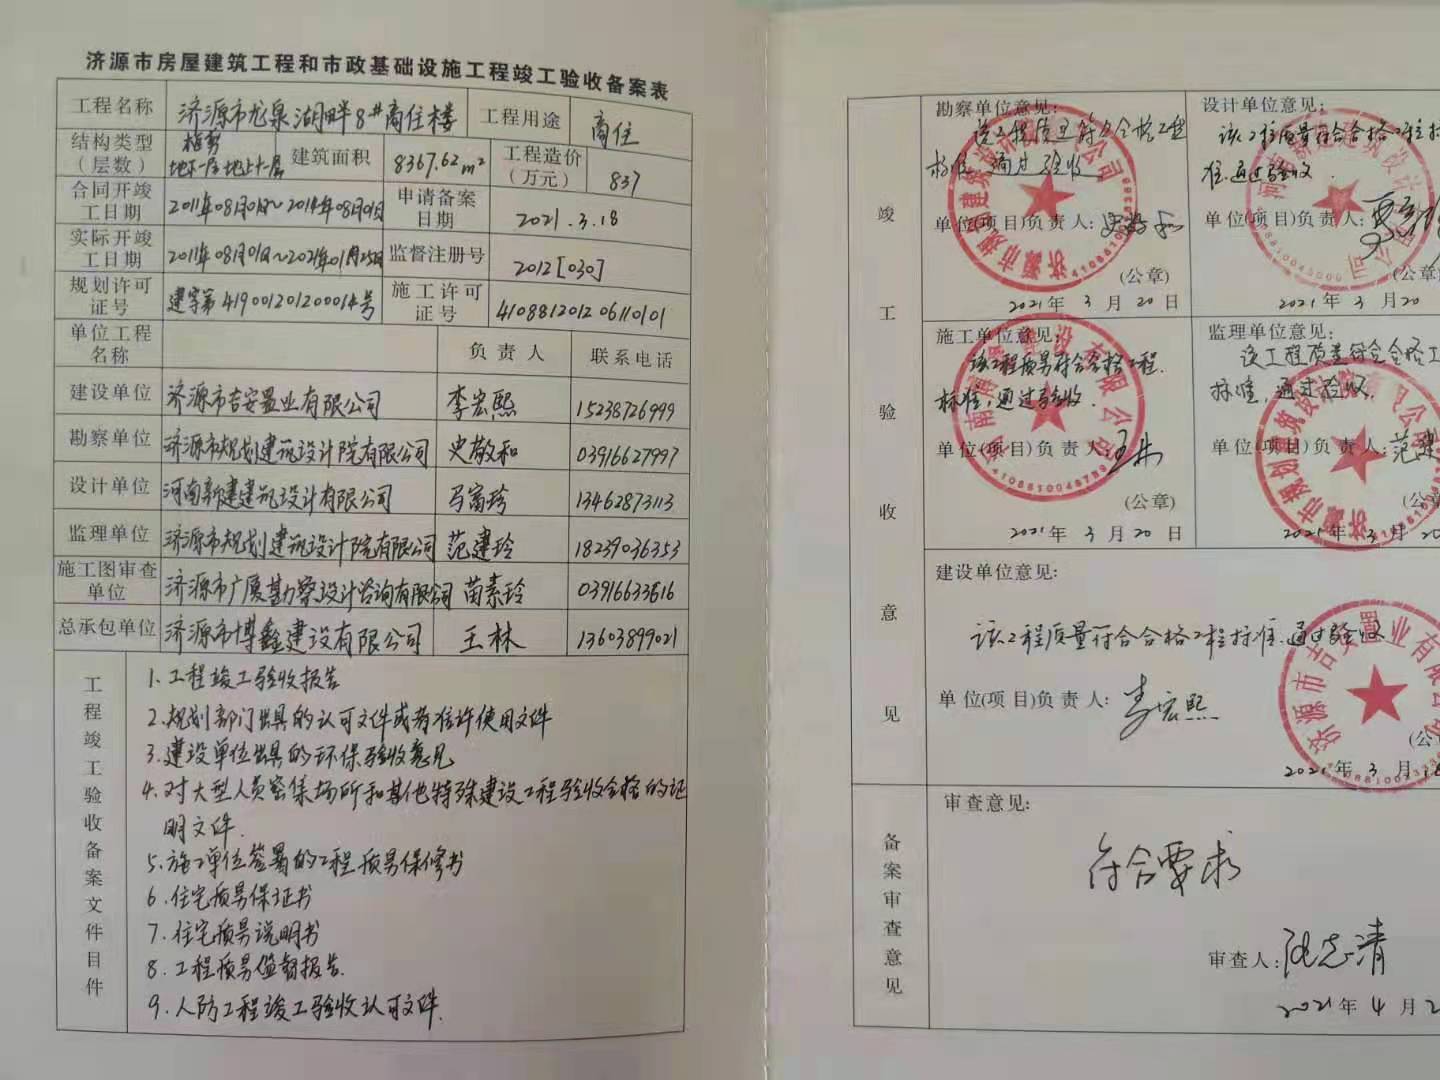 济源市房屋建筑工程和市政基础设施工程竣工验收备案表
工程名称 济源市龙泉湖畔8#商住楼 工程用途 商住
结构类型(层数) 框剪 地下一层地上十一层 建筑面积 8367.62m² 工程造价(万元) 837
合同开竣工日期 2011年08月01日~2014年08月01日 申请备案日期 2021.3.18
实际开竣工日期 2011年08月01日~2021年01月25日 监督注册号 2012[030]
规划许可证号 建字第419001201200014号 施工许可证号 410881201206110101
单位工程名称 负责人 联系电话
建设单位 济源市吉安置业有限公司 李宏熙 15238726999
勘察单位 济源市规划建筑设计院有限公司 史敬和 03916627997
设计单位 河南新建建筑设计有限公司 马富珍 13462873113
监理单位 济源市规划建筑设计院有限公司 范建玲 18239036353
施工图审查单位 济源市广厦勘察设计咨询有限公司 苗素玲 03916633616
总承包单位 济源市博鑫建设有限公司 王林 13603899021
工程竣工验收备案文件目件
1.工程竣工验收报告
2.规划部门出具的认可文件或者准许使用文件
3.建设单位出具的环保验收意见
4.对大型人员密集场所和其他特殊建设工程验收合格的证
明文件.
5.施工单位签署的工程质量保修书
6.住宅质量保证书
7.住宅质量说明书
8.工程质量监督报告.
9.人防工程竣工验收认可文件.
竣工验收意见
勘察单位意见:
该工程质量符合合格工程
标准,通过验收
单位(项目)负责人:史敬和
(公章)
2021年3月20日
设计单位意见:
该工程质量符合合格工程标
准.通过验收.
单位(项目)负责人:
(公章)
2021年3月20
施工单位意见:
该工程质量符合合格工程.
标准,通过验收.
单位(项目)负责人 王林
(公章)
2021年3月20日
监理单位意见:
该工程质量符合合格工
标准,通过验收.
单位(项目)负责人:范建
(公章
2021年3月20
建设单位意见:
该工程质量符合合格工程标准.通过验收
单位(项目)负责人:李宏熙
济源市吉安置业有限公司
(公
2021年3月18
备案审查意见
审查意见:
符合要求
审查人:
2021年4月2